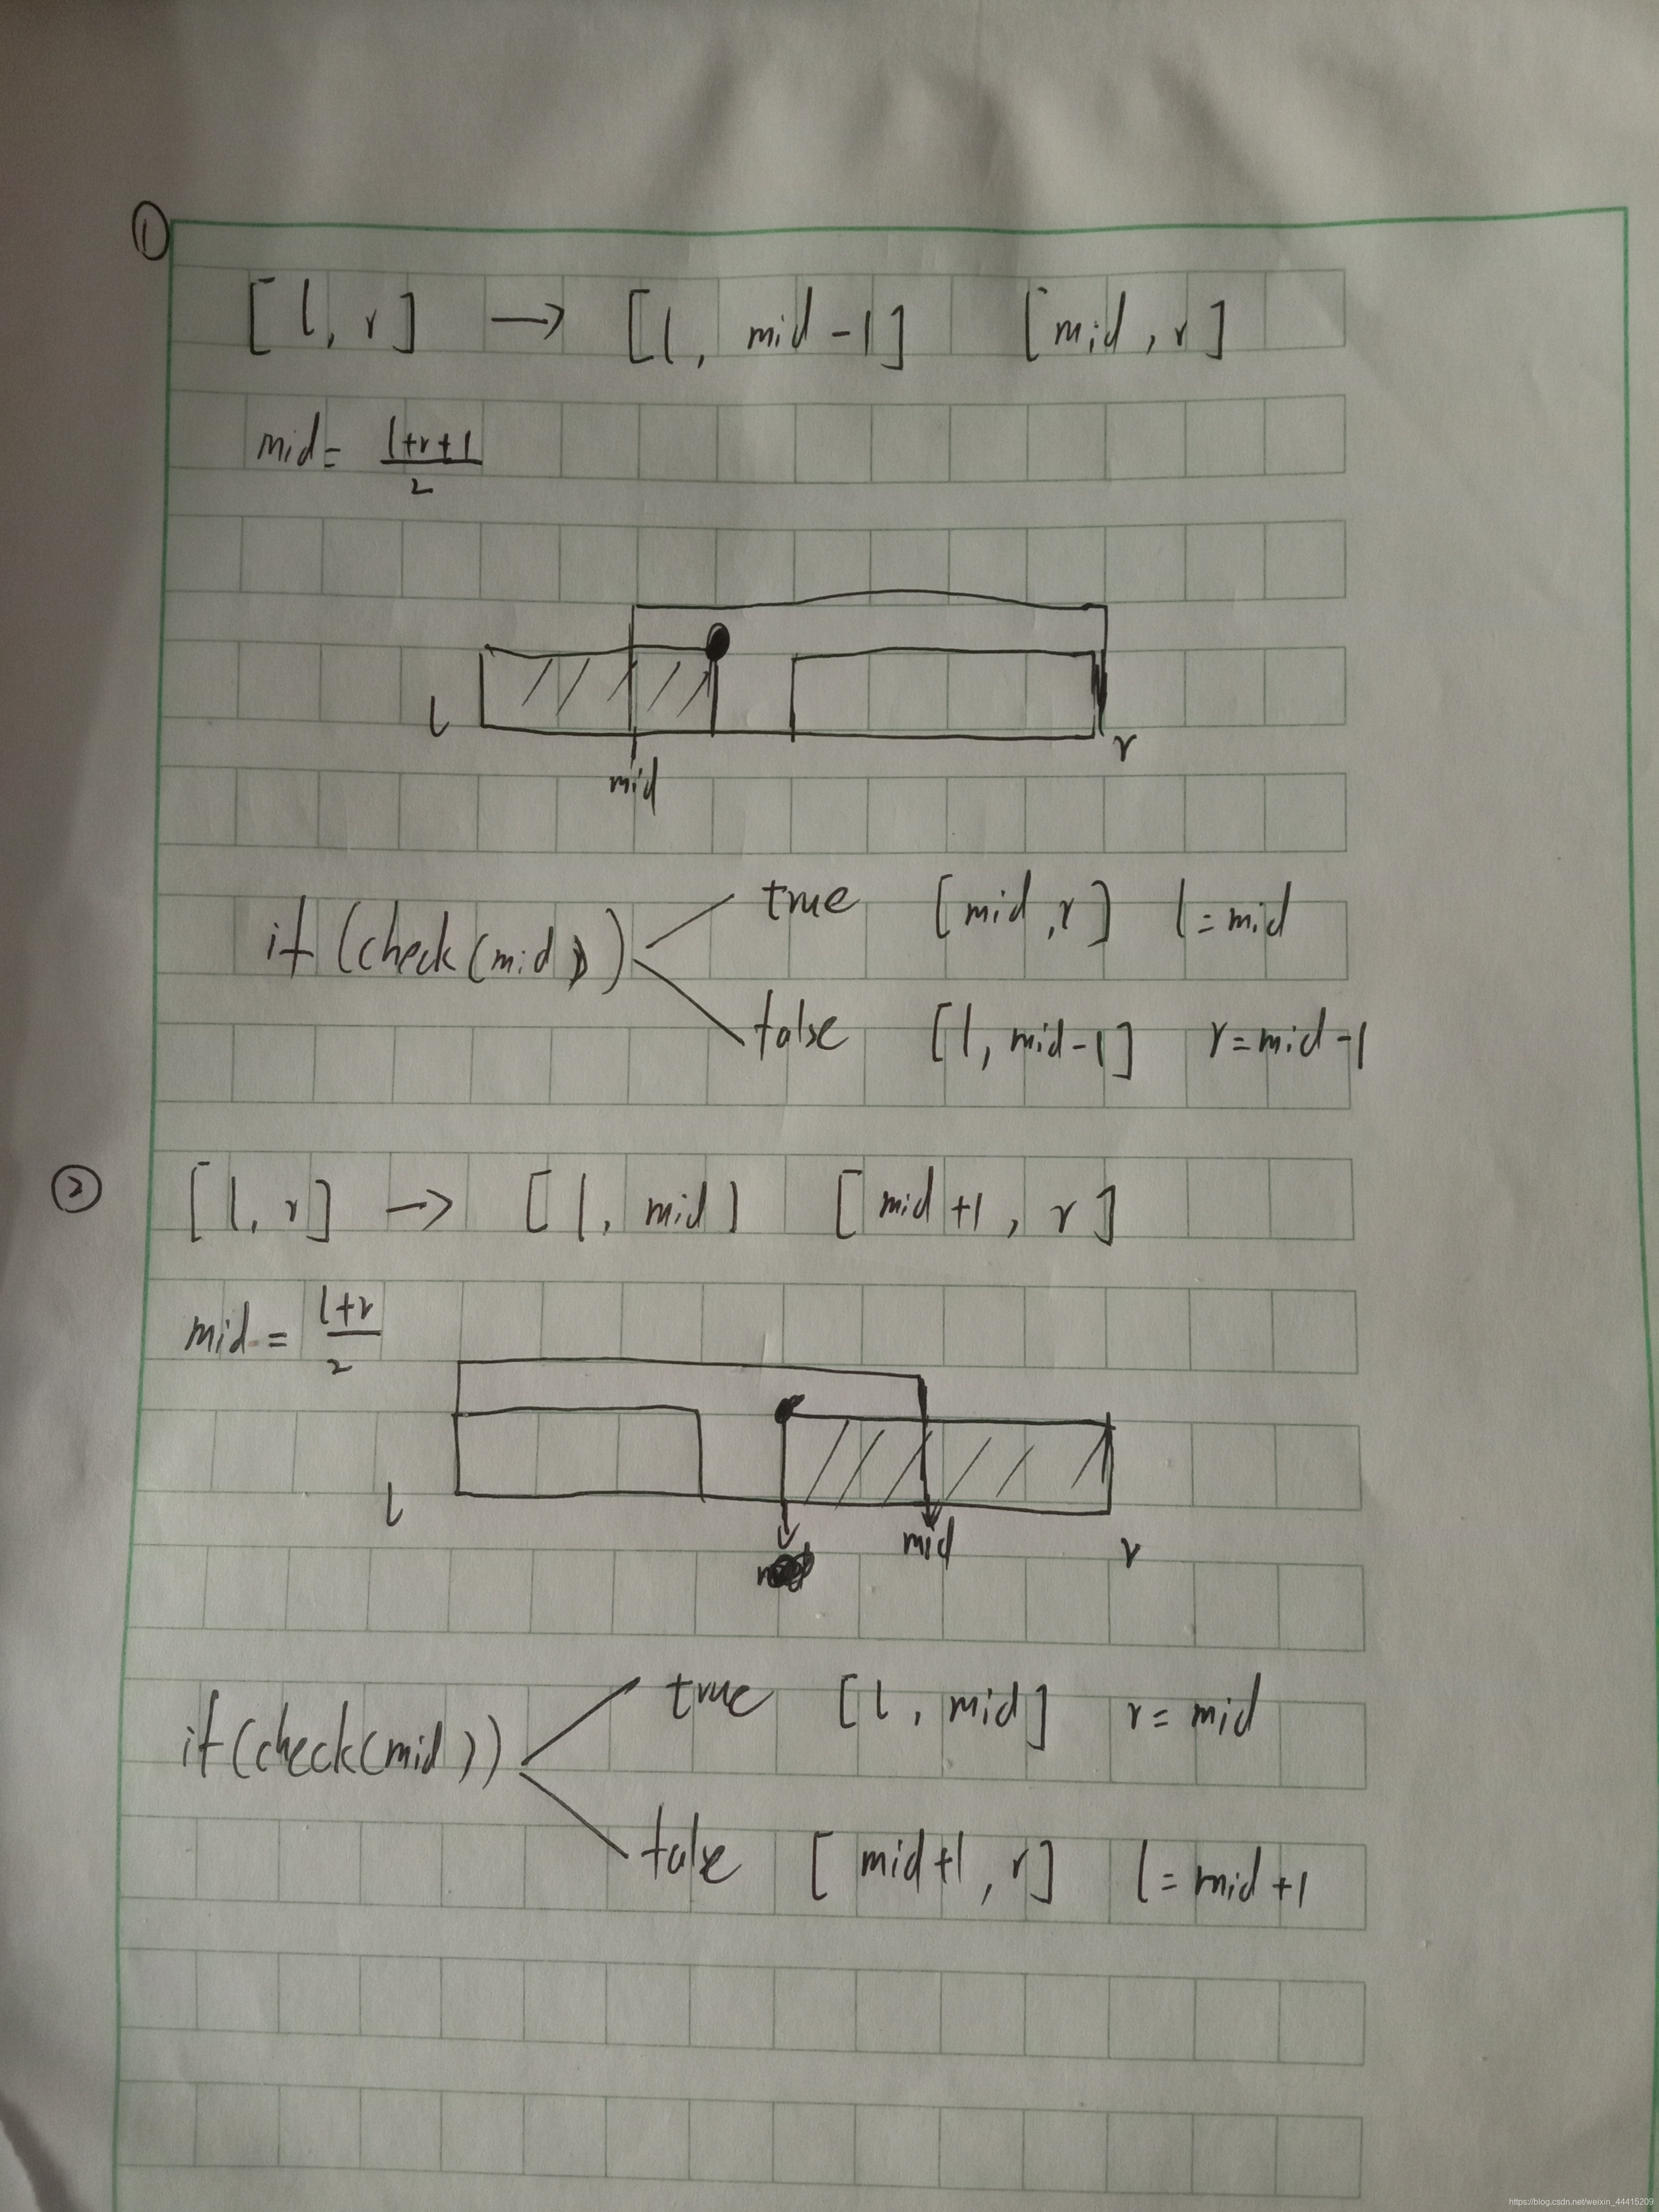 ①
[l, r] → [l, mid-1] [mid, r]
mid = (l+r+1)/2
l
r
mid
if (check(mid)) true [mid, r] l=mid
false [l, mid-1] r=mid-1
② [l, r] → [l, mid] [mid+1, r]
mid = (l+r)/2
l
mid
r
if(check(mid)) true [l, mid] r=mid
false [mid+1, r] l=mid+1
https://blog.csdn.net/weixin_44415209